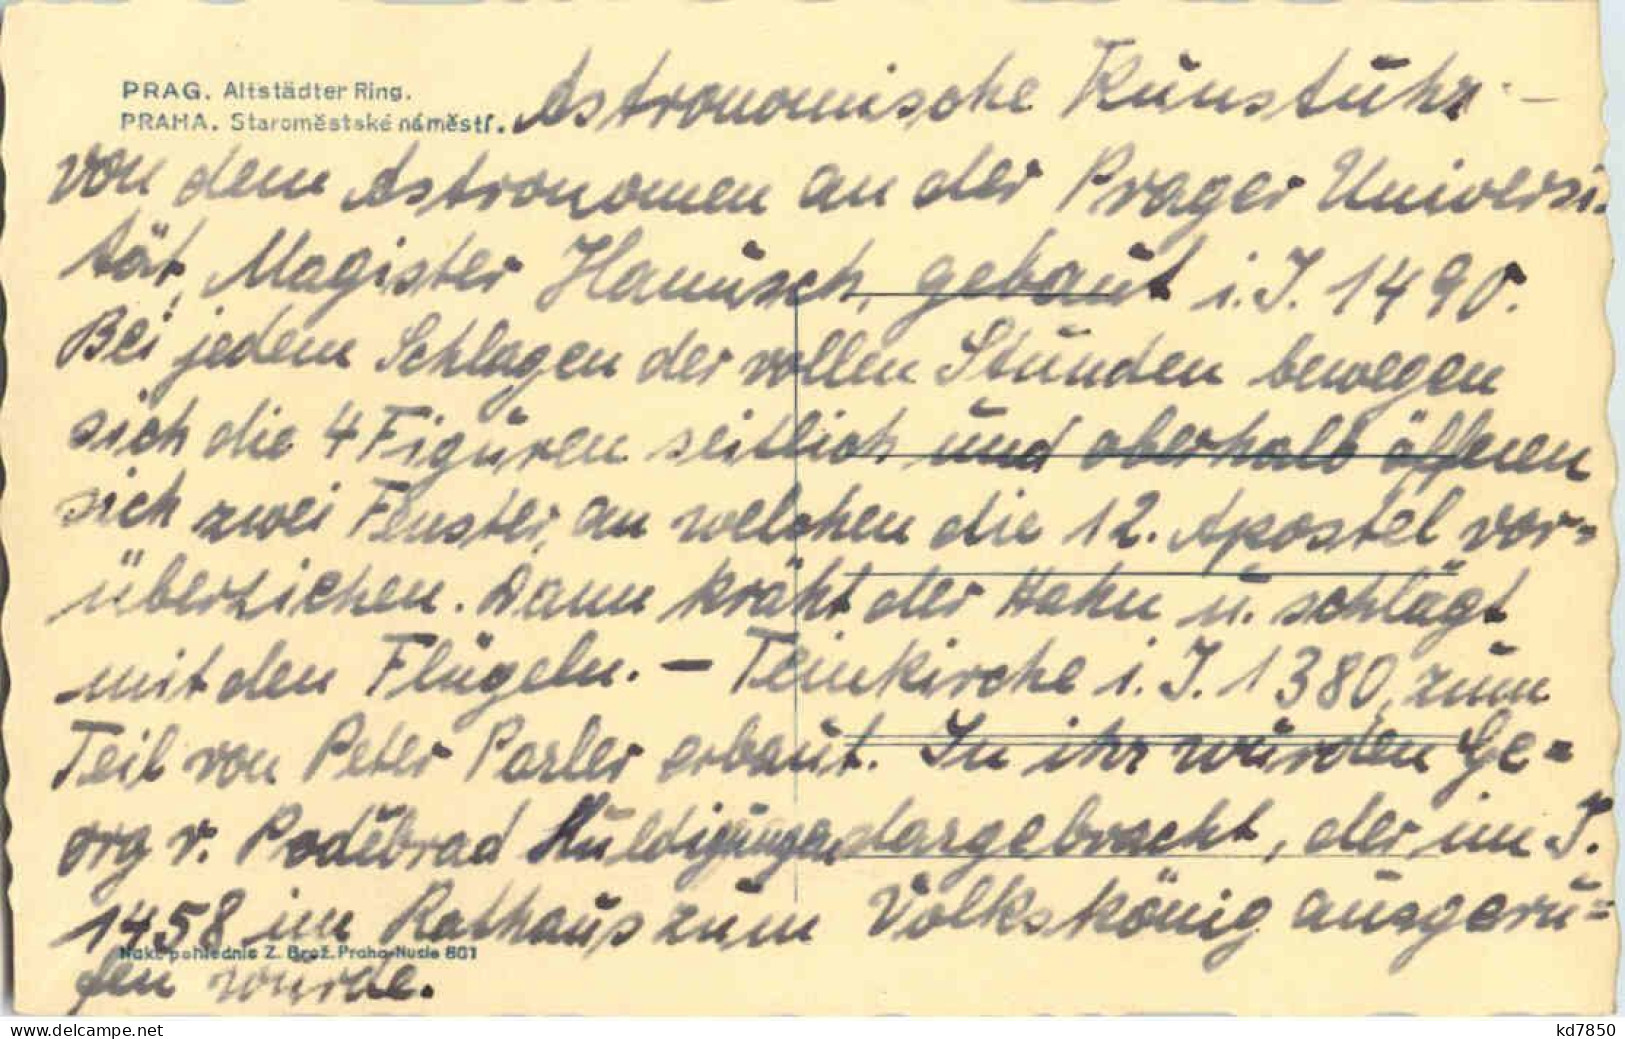 PRAG. Altstädter Ring.
PRAHA. Staroměstské náměstí.
Astronomische Kunstuhr -
von dem Astronomen an der Prager Universi-
tät, Magister Hanusch, gebaut i. J. 1490.
Bei jedem Schlagen der vollen Stunden bewegen
sich die 4 Figuren seitlich und oberhalb öffnen
sich zwei Fenster, an welchen die 12. Apostel vor=
überziehen. Dann kräht der Hahn u. schlägt
mit den Flügeln. - Teinkirche i. J. 1380, zum
Teil von Peter Parler erbaut. In ihr wurden Ge=
org v. Poděbrad Huldigungen dargebracht, der im J.
1458 im Rathaus zum Volkskönig ausgeru=
fen wurde.
Nakl. pohlednic Z. Brož. Praha-Nusle 801
www.delcampe.net
kd7850